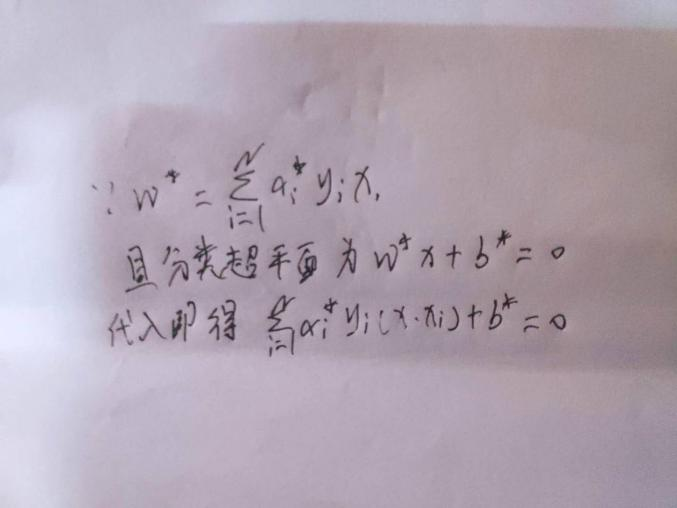 ∵ w* = Σ_{i=1}^{N} α_i* y_i x,
且分类超平面为 w* x + b* = 0
代入即得 Σ_{i=1}^{N} α_i* y_i (x·x_i) + b* = 0